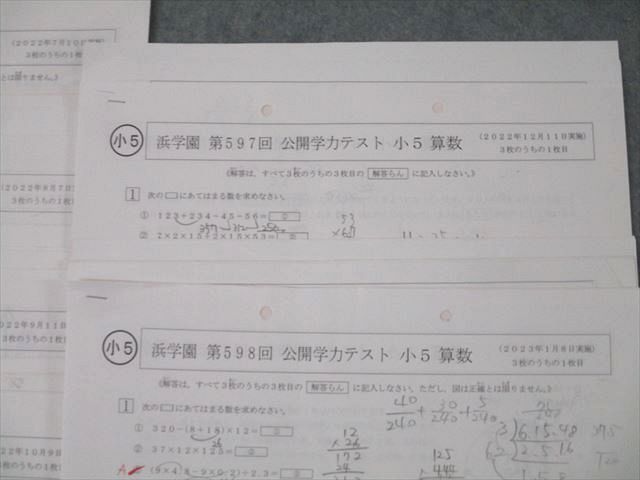 (2022年7月10日実施)
3枚のうちの1枚
とは限りません。》
(2022年8月7日
3枚のうちの1枚
022年9月11日
3枚のうちの1枚目
022年10月9日
3枚のうちの1枚目
小5
浜学園 第597回 公開学力テスト 小5 算数
(2022年12月11日実施)
3枚のうちの1枚目
《解答は、すべて3枚のうちの3枚目の 解答らん に記入しなさい。》
1 次の□にあてはまる数を求めなさい。
① 123+234-45-56=①
357 312 256
② 7×2×15+2×15×53=②
53
小5
浜学園 第598回 公開学力テスト 小5 算数
(2023年1月8日実施)
3枚のうちの1枚目
《解答は、すべて3枚のうちの3枚目の 解答らん に記入しなさい。ただし、図は正確とは限りません。》
1 次の□にあてはまる数を求めなさい。
① 320-(8+18)×12=①
26
② 37×12×125=②
40/240+30/240+5/240
12
×26
172
24
125
3)6.15.48
2.5.16